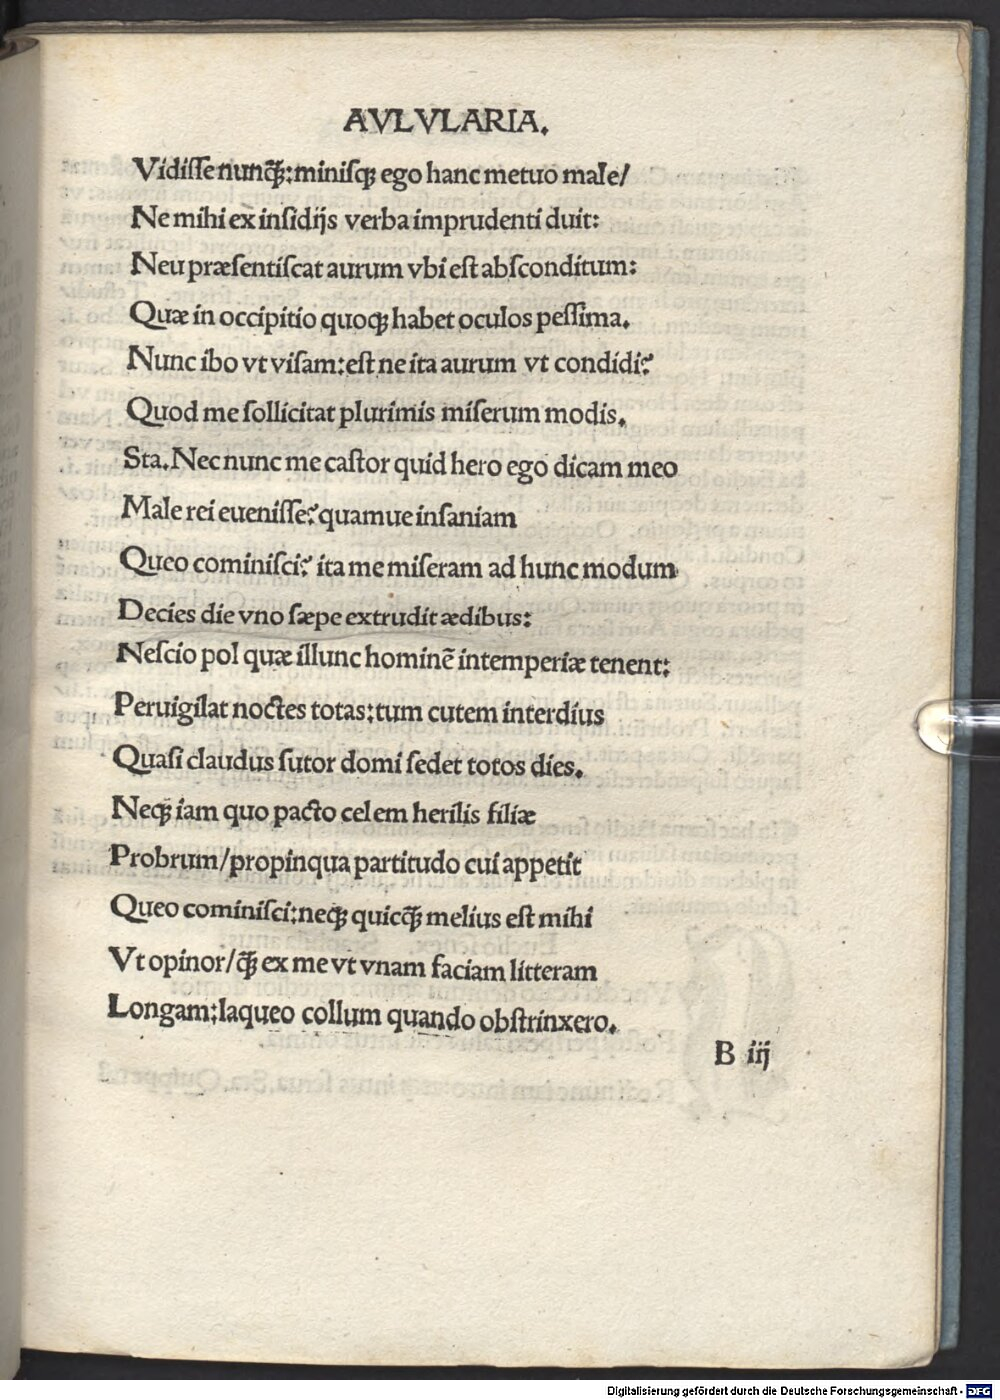 AVLVLARIA.
Vidisse nunꝙ̃:minisqꝫ ego hanc metuo male/
Ne mihi ex insidijs verba imprudenti duit:
Neu præsentiscat aurum vbi est absconditum:
Quæ in occipitio quoqꝫ habet oculos pessima.
Nunc ibo vt visam:est ne ita aurum vt condidi?
Quod me sollicitat plurimis miserum modis.
Sta.Nec nunc me castor quid hero ego dicam meo
Male rei euenisse?quamue insaniam
Queo cominisci? ita me miseram ad hunc modum
Decies die vno sæpe extrudit ædibus:
Nescio pol quæ illunc hominẽ intemperiæ tenent:
Peruigilat noctes totas:tum cutem interdius
Quasi claudus sutor domi sedet totos dies.
Neqꝫ iam quo pacto celem herilis filiæ
Probrum/propinqua partitudo cui appetit
Queo cominisci:neqꝫ quicꝙ̃ melius est mihi
Vt opinor/ꝙ̃ ex me vt vnam faciam litteram
Longam:laqueo collum quando obstrinxero.
B iij
Digitalisierung gefördert durch die Deutsche Forschungsgemeinschaft - DFG